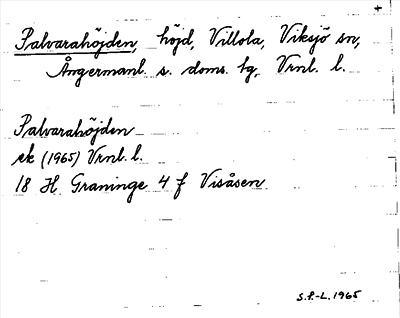 Palvarahöjden, höjd, Villola, Viksjö sn,
Ångermanl. s. doms. hg, Vrnl. l.
Palvarahöjden
ek (1965) Vrnl. l.
18 H Graninge 4 f Visåsen
S.F.-L. 1965